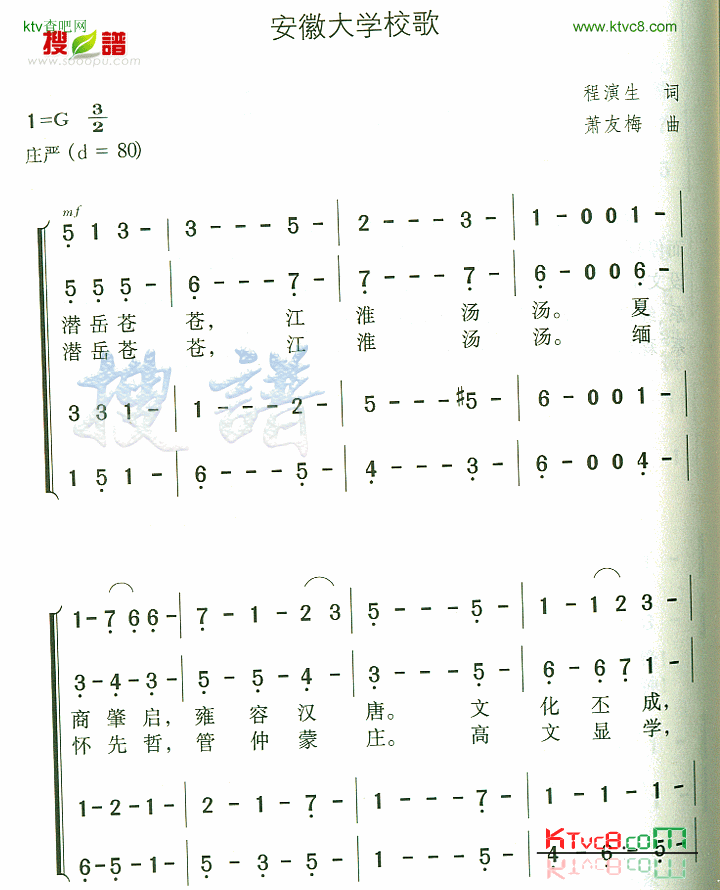 ktv查吧网
搜谱
www.sooopu.com
安徽大学校歌
www.ktvc8.com
1=G 3/2
程演生 词
庄严 (d = 80)
萧友梅 曲
mf
5̣ 1 3 - | 3 - - - 5 - | 2 - - - 3 - | 1 - 0 0 1 -
5̣ 5̣ 5̣ - | 6̣ - - - 7̣ - | 7̣ - - - 7̣ - | 6̣ - 0 0 6̣ -
潜岳苍 苍, 江 淮 汤 汤。 夏
潜岳苍 苍, 江 淮 汤 汤。 缅
3 3 1 - | 1 - - - 2 - | 5 - - - #5 - | 6 - 0 0 1 -
1 5̣ 1 - | 6̣ - - - 5̣ - | 4̣ - - - 3̣ - | 6̣ - 0 0 4̣ -
搜谱
1 - 7̣ 6̣ 6̣ - | 7̣ - 1 - 2 3 | 5̣ - - - 5̣ - | 1 - 1 2 3 -
3̣ - 4̣ - 3̣ - | 5̣ - 5̣ - 4̣ - | 3̣ - - - 5̣ - | 6̣ - 6̣ 7̣ 1 -
商 肇 启, 雍 容 汉 唐。 文 化 丕 成,
怀 先 哲, 管 仲 蒙 庄。 高 文 显 学,
1 - 2 - 1 - | 2 - 1 - 7̣ - | 1 - - - 7̣ - | 1 - 1 - 1 -
KTvc8.com
6̣ - 5̣ - 1 - | 5̣ - 5̣ - 5̣ - | 1 - - - 5̣ - | 4̣ - 6̣ - 5̣ -